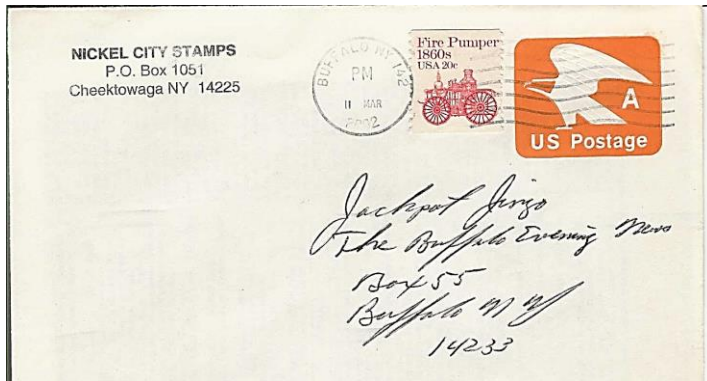 NICKEL CITY STAMPS
P.O. Box 1051
Cheektowaga NY 14225
BUFFALO NY 142
PM
11 MAR
2002
Fire Pumper
1860s
USA 20c
A
US Postage
Jackpot Jingo
The Buffalo Evening News
Box 55
Buffalo N Y
14233